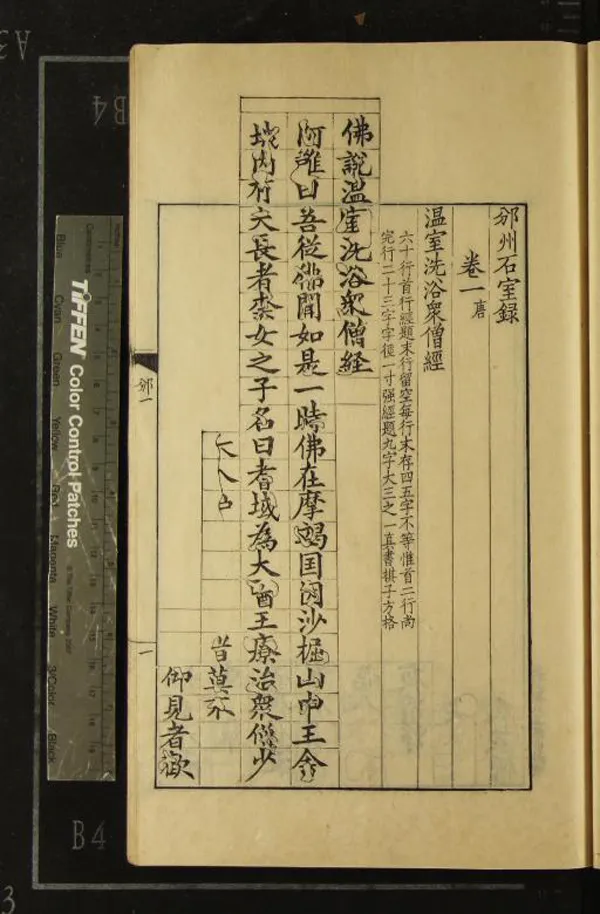 邠州石室録
卷一 唐
温室洗浴衆僧經
六十行首行經題末行留空每行末存四五字不等惟首二行尚
完行二十三字字徑一寸强經題九字大三之一真書棋子方格
佛說温室洗浴衆僧経
阿難曰吾從佛聞如是一時佛在摩竭国因沙崛山中王舍
城内有大長者柰女之子名曰耆域為大醫王療治衆僧少
莫不
仰見者歡
邠一
一
TIFFEN Color Control Patches
Blue Cyan Green Yellow Red Magenta White 3/Color Black
B4
B4
A3
3